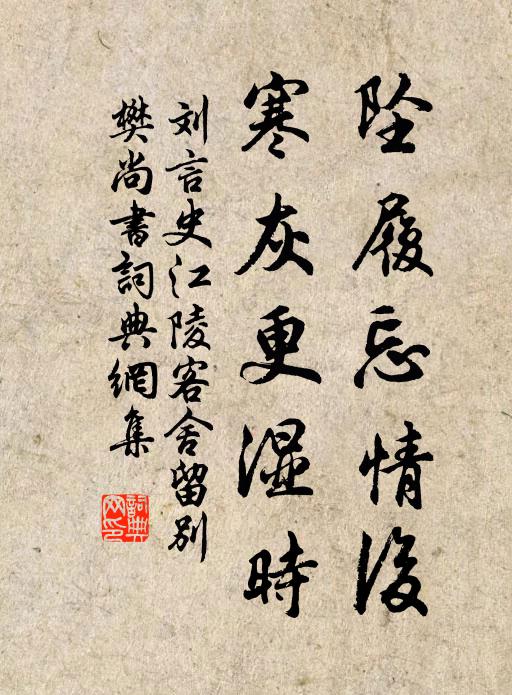 坠履忘情後
寒灰更湿時
刘言史江陵客舍留別
樊尚書詞典網集
詞典网印